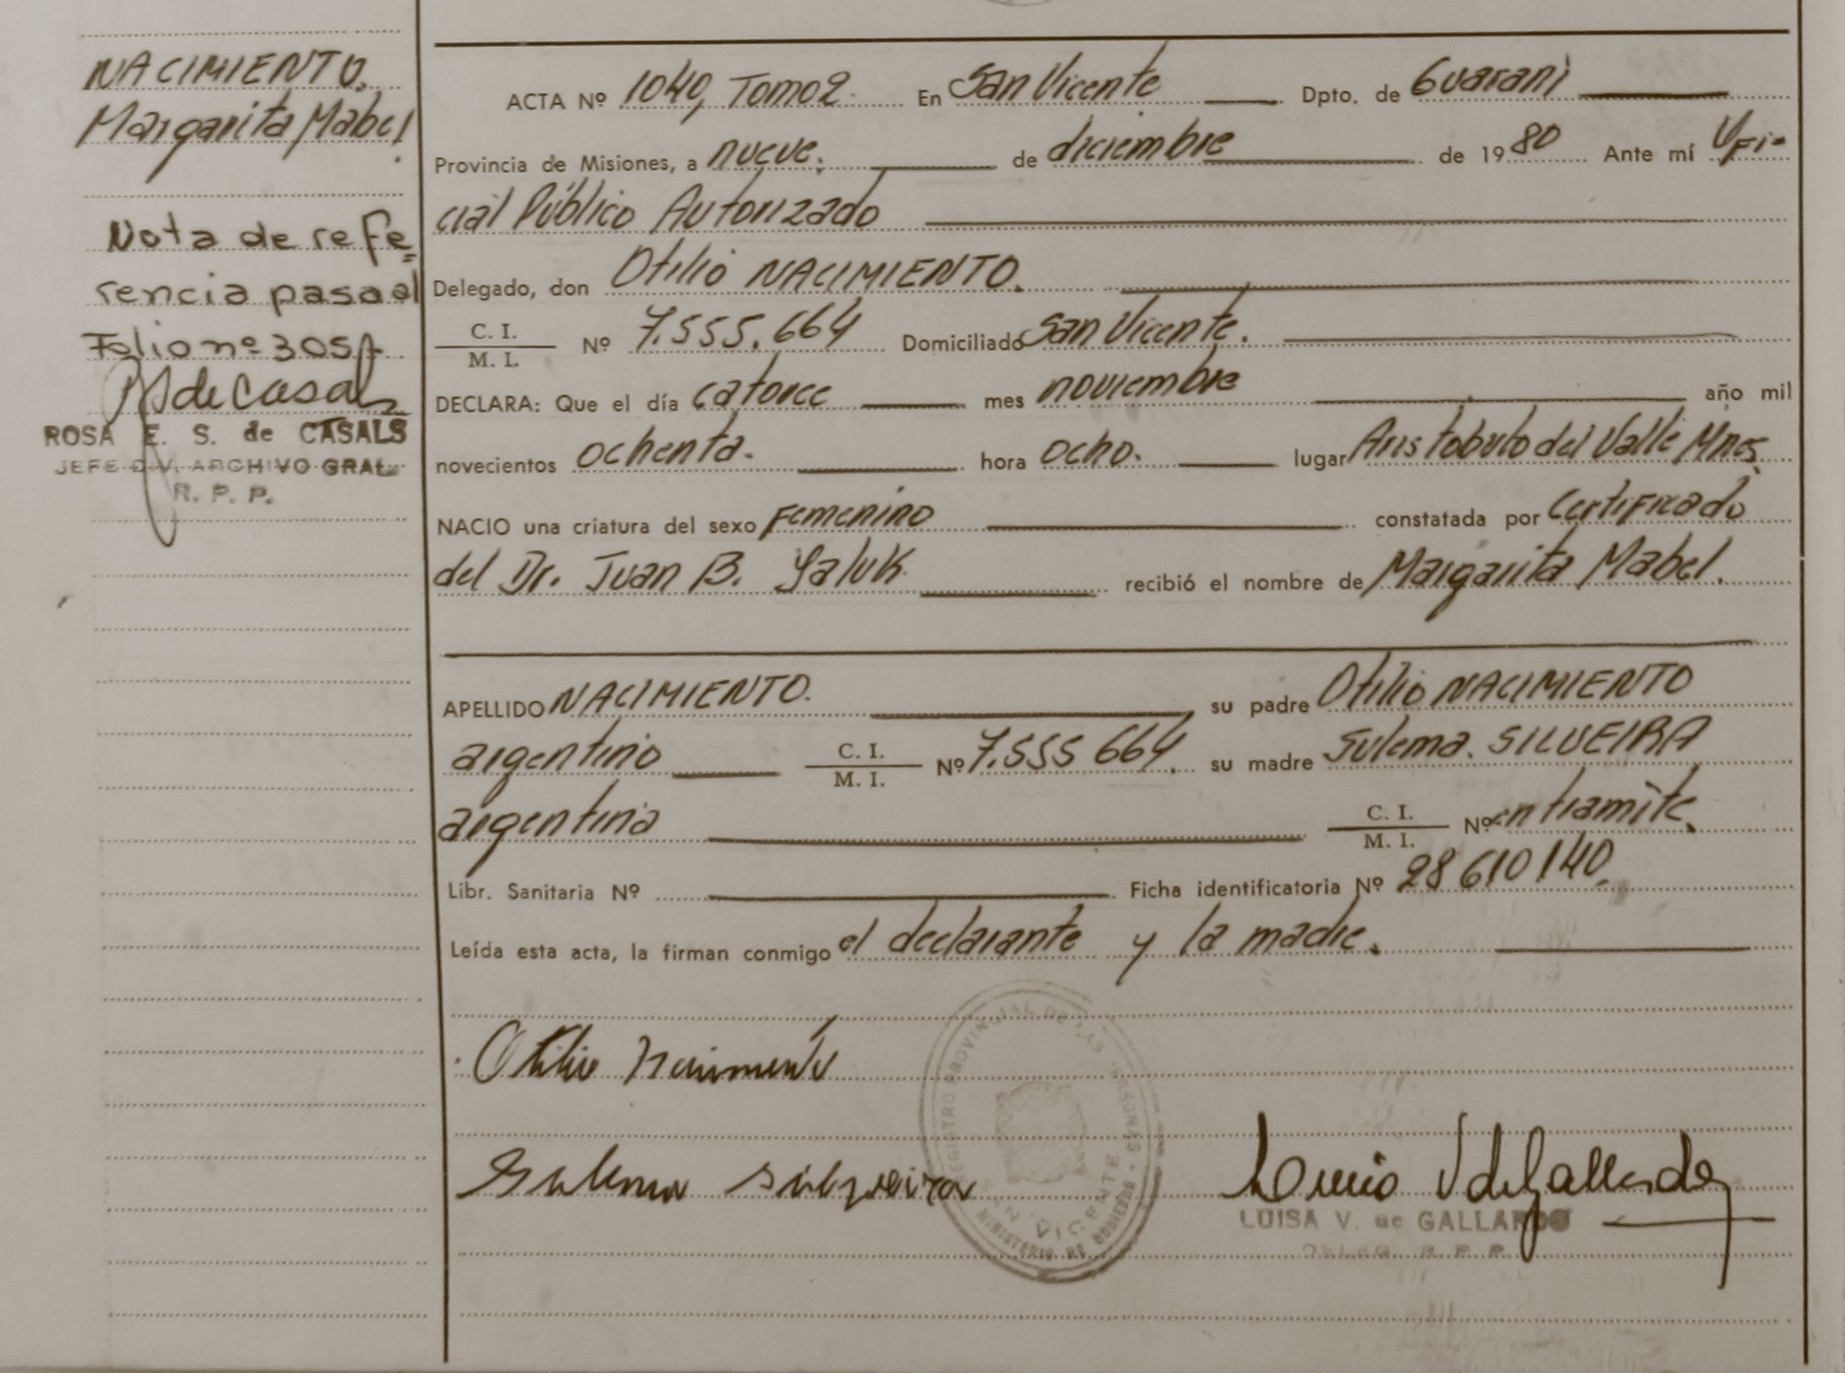 NACIMIENTO.
Margarita Mabel.
Nota de refe=
rencia pasa al
Folio nº 305
de Casals
ROSA E. S. de CASALS
JEFE DIV. ARCHIVO GRAL.
R. P. P.
ACTA Nº 1040, Tomo 2. En San Vicente Dpto. de Guaraní
Provincia de Misiones, a nueve. de diciembre de 1980 Ante mí Ofi-
cial Público Autorizado
Delegado, don Otilio NACIMIENTO.
C. I.
M. I. Nº 7.555.664 Domiciliado San Vicente.
DECLARA: Que el día catorce mes noviembre año mil
novecientos ochenta. hora ocho. lugar Aristobulo del Valle Mnes.
NACIO una criatura del sexo Femenino constatada por Certificado
del Dr. Juan B. Saluk recibió el nombre de Margarita Mabel.
APELLIDO NACIMIENTO. su padre Otilio NACIMIENTO
argentino C. I.
M. I. Nº 7.555 664. su madre Sulema. SILVEIRA
argentina C. I.
M. I. Nº en tramite.
Libr. Sanitaria Nº Ficha identificatoria Nº 28610140.
Leída esta acta, la firman conmigo el declarante y la madre.
Otilio Nacimento
REGISTRO PROVINCIAL DE LAS PERSONAS - MINISTERIO DE GOBIERNO
SAN VICENTE
LUISA V. de GALLARDO
DELEG. R. P. P.